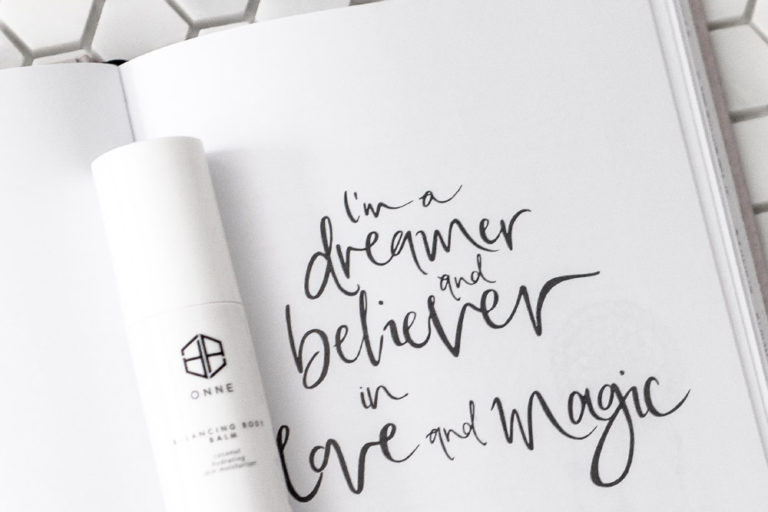 I'm a
dreamer
and
believer
in
love and Magic
ONNE
BALANCING BODY
BALM
coconut
hydrating